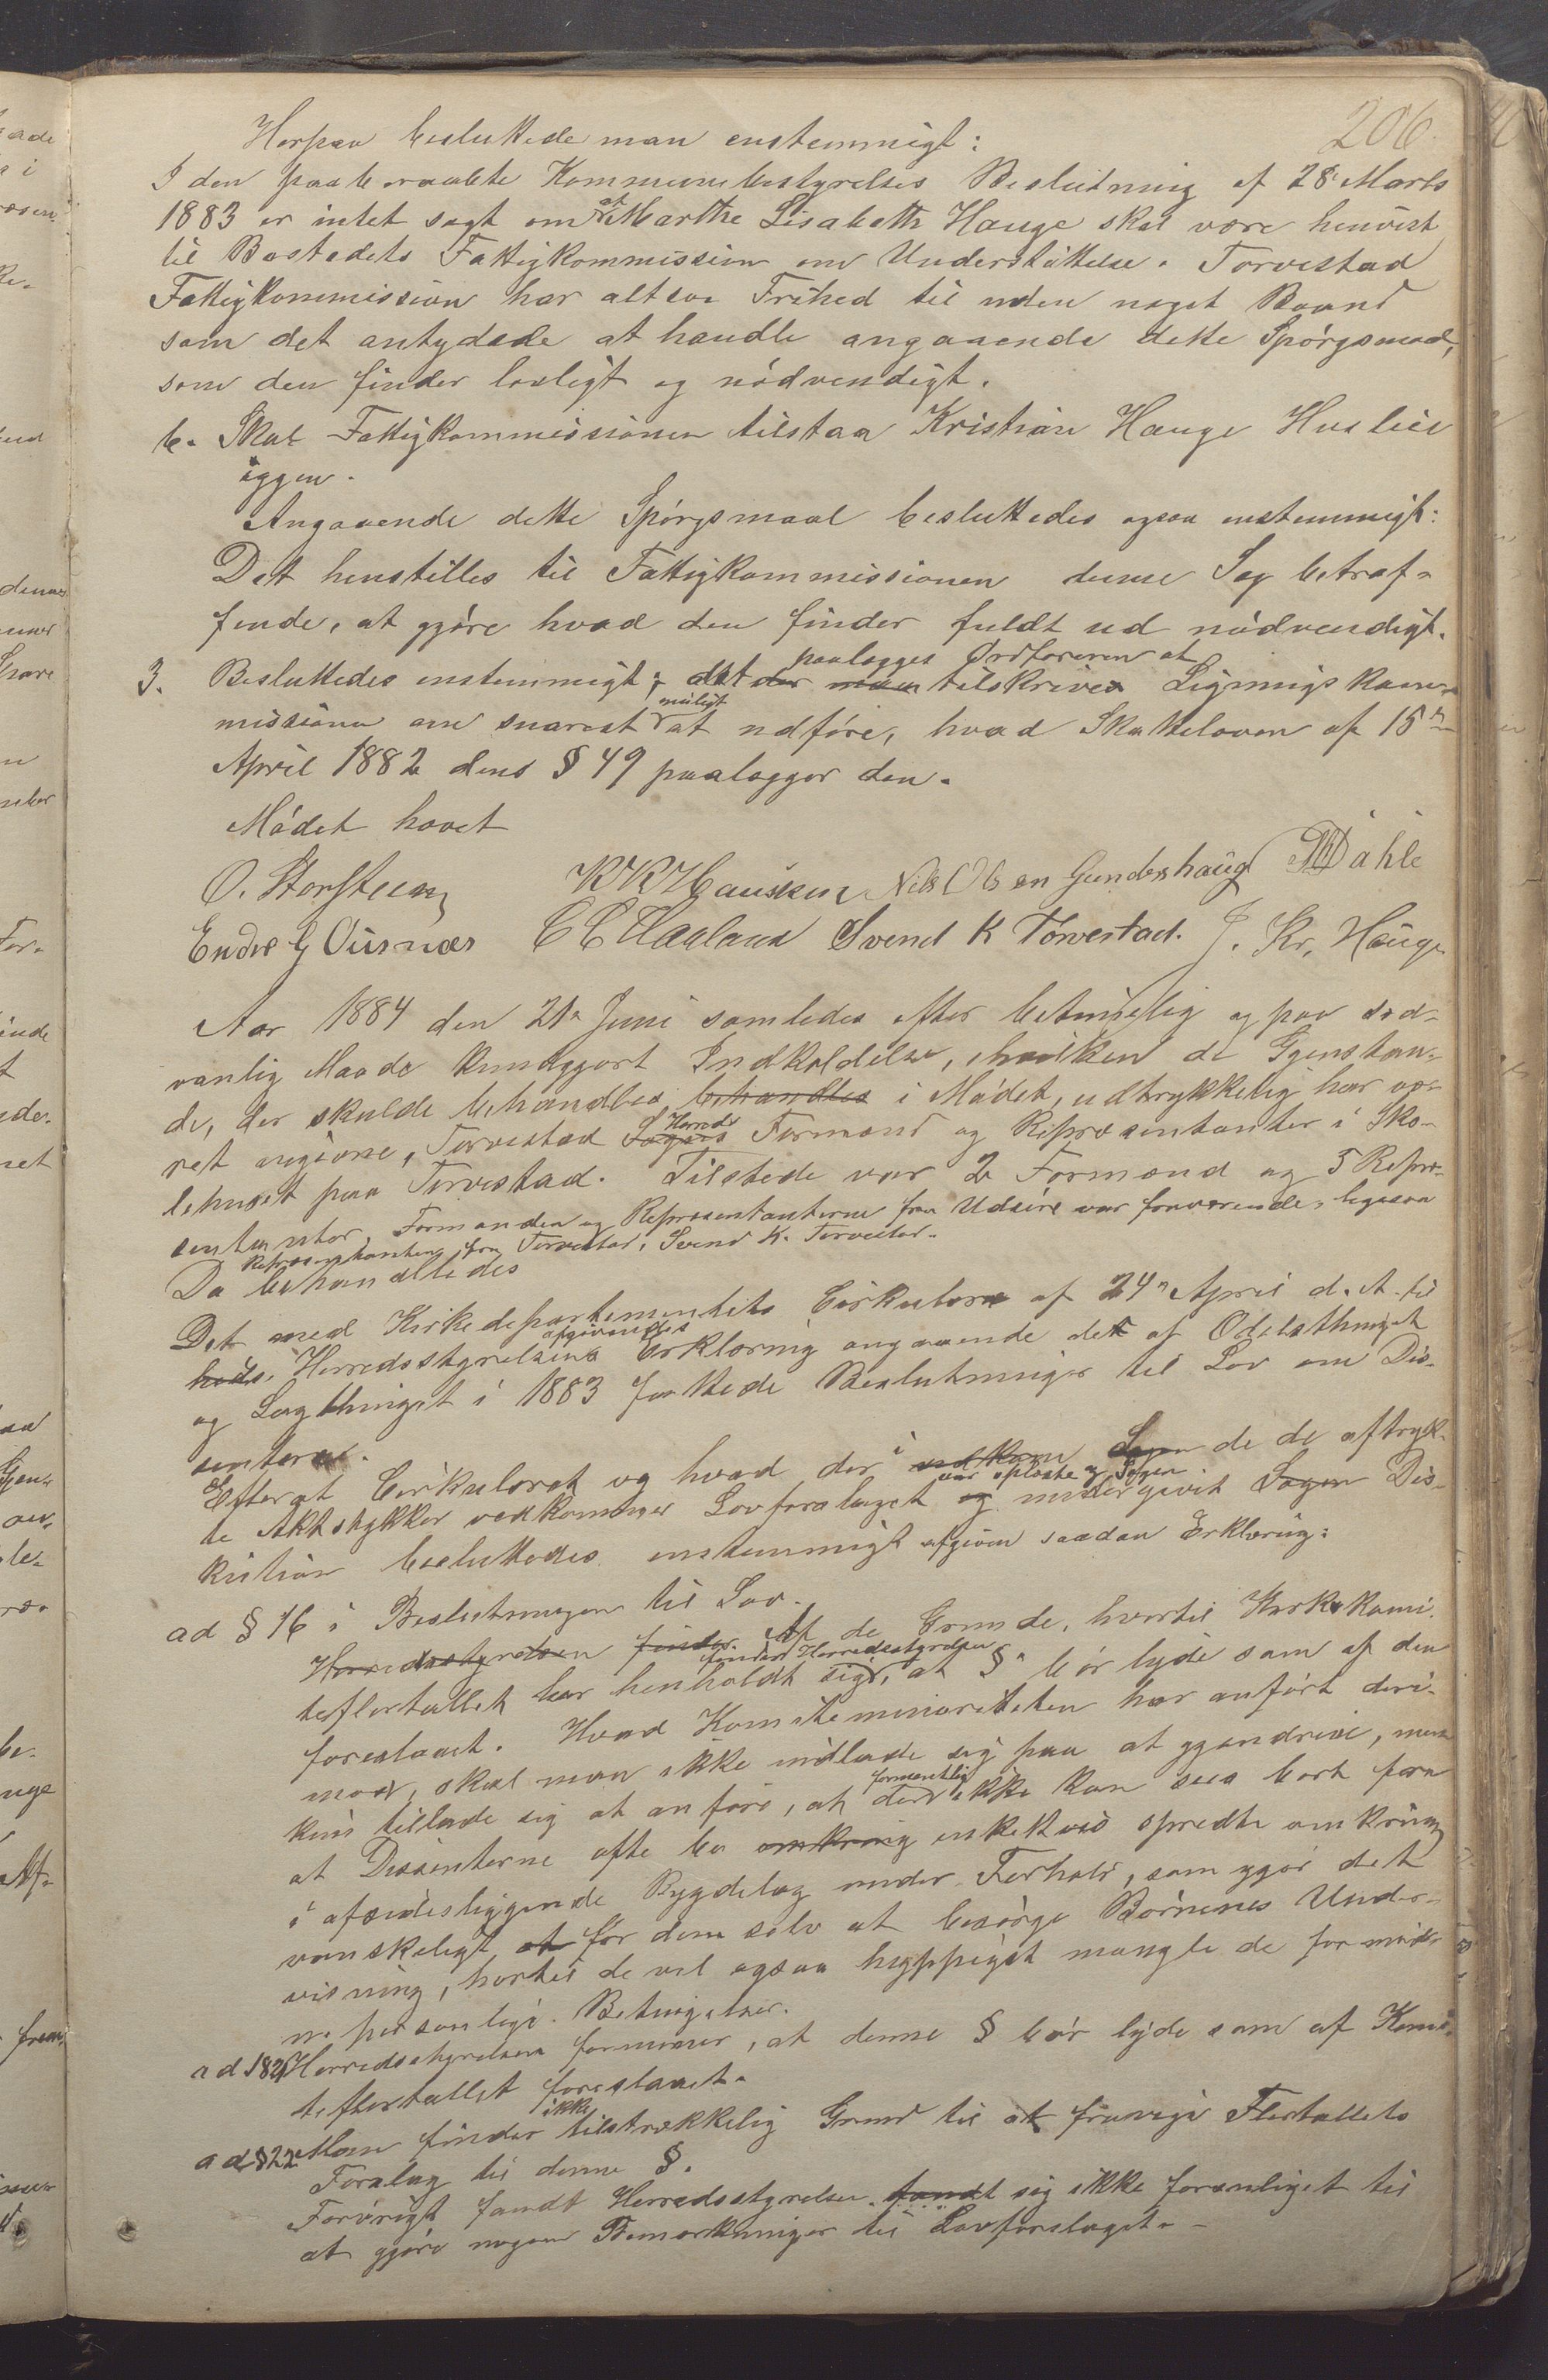 206.
Herpaa besluttede man enstemmigt:
I den paaberaabte Kommunebestyrelses Beslutning af 28. Marts
1883 er intet sagt om at Marthe Lisabeth Hauge skal være henvist
til Bostedets Fattigkommission om Understøttelse. Torvestad
Fattigkommission har altsaa Frihed til uden noget Baand
som det antydede at handle angaaende dette Spørgsmaal,
som den finder lovligt og nødvendigt.
b. Skal Fattigkommissionen tilstaa Kristian Hauge Husleie
iggen.
Angaaende dette Spørgsmaal besluttedes ogsaa enstemmigt:
Det henstilles til Fattigkommissionen denne Sag betræf-
fende, at gjøre hvad den finder fuldt ud nødvendigt.
paalægges Ordføreren at
3. Besluttedes enstemmigt; det der man tilskrives Ligningskom-
missionen om snarest muligt at udføre, hvad Skatteloven af 15de
April 1882 dens § 49 paalægger den.
Mødet hævet
O. Storsteen KKHausken Nils Olsen Gundershaug Dahle
Endre G Øusnæs CCHaaland Svend K Torvestad. J. Kr. Hauge
Aar 1884 den 21de Juni samledes efter betimelig og paa sæd-
vanlig Maade kundgjort Indkaldelse, i hvilken de Gjenstan-
de, der skulde behandles behandles i Mødet, udtrykkelig har væ-
ret angivne, Torvestad Sogns Herreds Formænd og Repræsentanter i Sko-
lehuset paa Torvestad. Tilstede var 2 Formænd og 5 Repræ-
sentanter. Formanden og Repræsentanterne fra Udsire var fraværende, ligesaa
Repræsentanten fra Torvestad, Svend K. Torvestad.
Da behandledes
Det med Kirkedepartementets Cirkulære af 24de April d. A. til
afgivendes
Herredsstyrelsens Erklæring angaaende det af Odelsthinget
og Lagthinget i 1883 fattede Beslutninger til Lov om Dis-
sentere.
Efterat Cirkulæret og hvad der i Sagen de de aftryk-
te Aktstykker vedkommer Lovforslaget var oplæste og Sagen undergivet Sagen Dis-
kution besluttedes enstemmigt afgiven saadan Erklæring:
ad § 16 i Beslutningen til Lov.
Herredsstyrelsen finder Af de Grunde, hvortil Kirkekomi-
teflertallet har henholdt sig, finder Herredsstyrelsen at § bør lyde som af den
foreslaaet. Hvad Komiteminoriteten har anført deri-
mod, skal man ikke indlade sig paa at gjendrive, men
kun tillade sig at anføre, at der formentlig ikke kan sees bort fra
at Dissenterne ofte bo omkring enkeltvis spredte omkring
i afsidesliggende Bygdelag under Forhold, som gjør det
vanskeligt at for dem selv at besørge Børnenes Under-
visning, hvortil de vel ogsaa hyppigst mangle de fornød-
ne personlige Betingelser.
ad 18de Herredsstyrelsen formener, at denne § bør lyde som af Komi-
teflertallet foreslaaet.
ad § 22 Man finder ikke tilstrækkelig Grund til at fravige Flertallets
Forslag til denne §.
Forøvrigt fandt Herredsstyrelsen fandt sig ikke foranliget til
at gjøre nogen Bemærkninger til Lovforslaget.